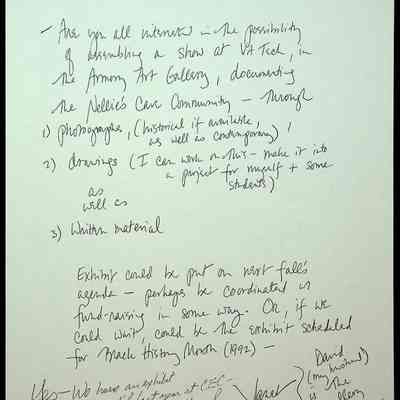 – Are you all interested in the possibility
of assembling a show at VA Tech, in
the Armory Art Gallery, documenting
the Nellie's Cave Community – through
1) photographs, (historical if available,
as well as contemporary) /
2) drawings (I can work on this – make it into
a project for myself + some
students)
as
well as
3) Written material
Exhibit could be put on next fall's
agenda – perhaps be coordinated w
fund-raising in some way. Or, if we
could wait, could be the exhibit scheduled
for Black History Month (1992) –
Yes – We have an exhibit
last year at CEC-
Janet
David
(my husband)
is
the
gallery